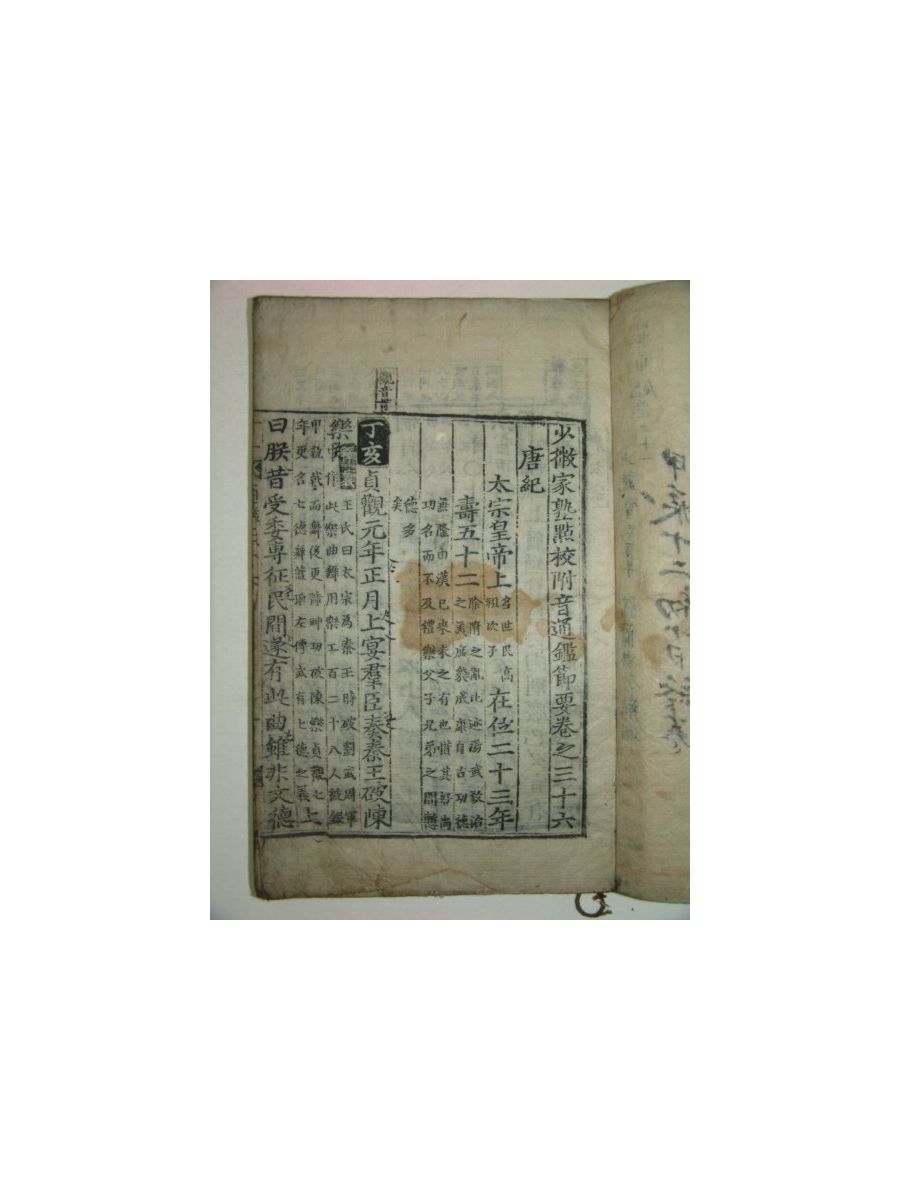 少微家塾點校附音通鑑節要卷之三十六
唐紀
太宗皇帝上 名世民高祖次子 在位二十三年
壽五十二 除隋之亂比迹湯武致治之美庶幾成康自古功德
兼隆由漢已來未之有也惜其好尚功名而不及禮樂父子兄弟之間慙
德多矣
觀音貫
丁亥 貞觀元年正月上宴羣臣奏秦王破陳
樂 釋義 王氏曰太宗爲秦王時破劉武周軍中作此樂曲舞用樂工百二十八人被銀
甲執戟而舞後更號神功破陳樂貞觀七年更名七德舞蓋取左傳武有七德之義 上
曰朕昔受委專征民間遂有此曲雖非文德